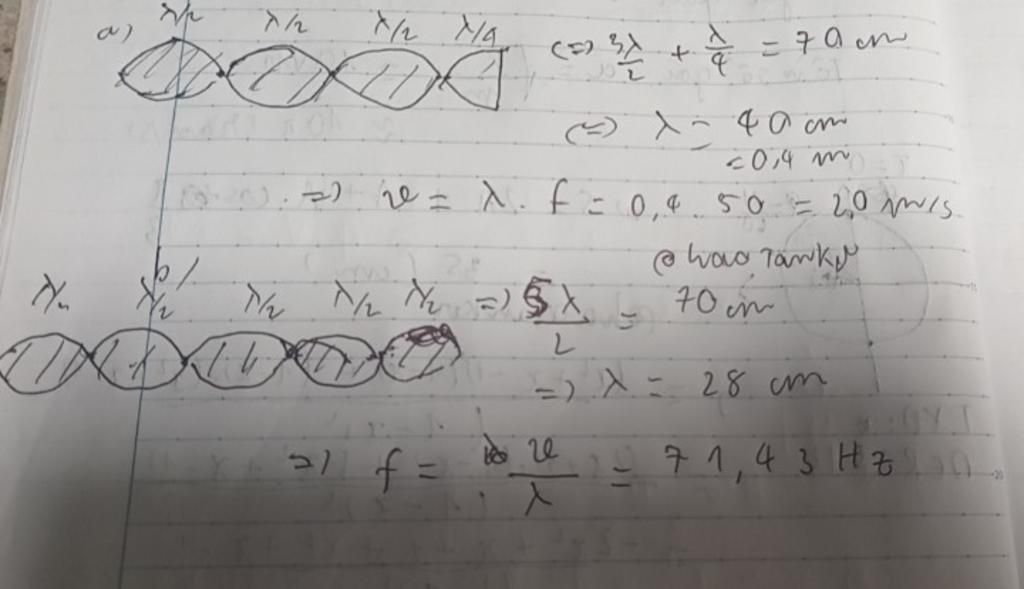 a) λ/2 λ/2 λ/2 λ/4 (=) 3λ/2 + λ/4 = 70 cm
(=) λ = 40 cm
= 0,4 m
=) v = λ. f = 0,4 . 50 = 20 m/s
b/
λ/2 λ/2 λ/2 λ/2 λ/2 =) 5λ/2 = 70 cm
=) λ = 28 cm
=) f = v/λ = 71,43 Hz